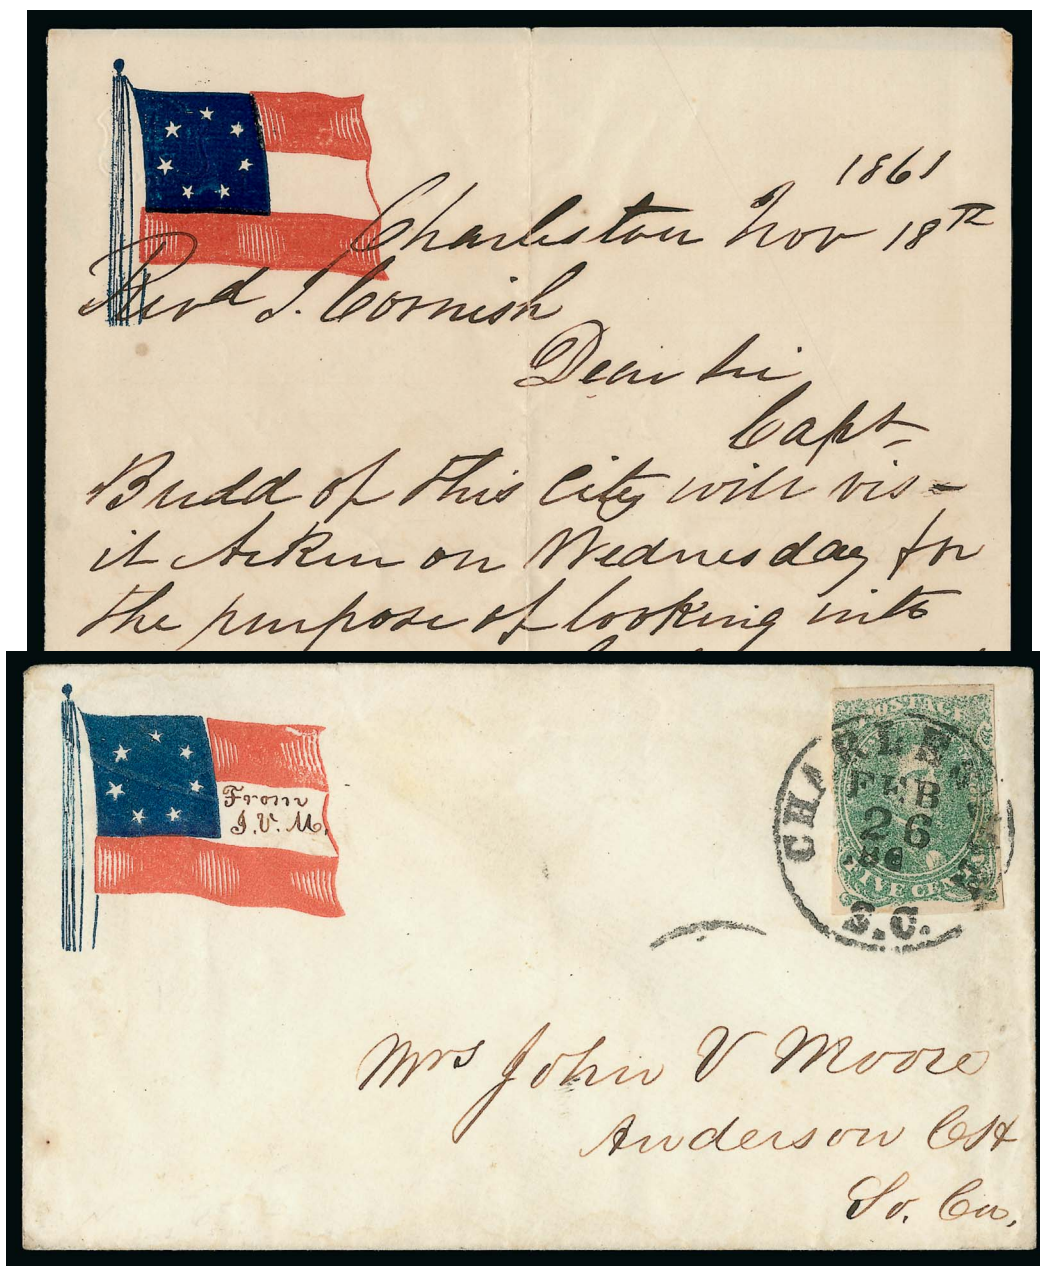 1861
Charleston Nov 18th
Revd J. Cornish
Dear Sir
Capt
Budd of this City will vis-
it Aiken on Wednesday for
the purpose of looking into
From
J.V.M.
POSTAGE
FIVE CENTS
CHARLESTON
FEB
26
S.C.
Mrs John V Moore
Anderson CH
So. Ca,